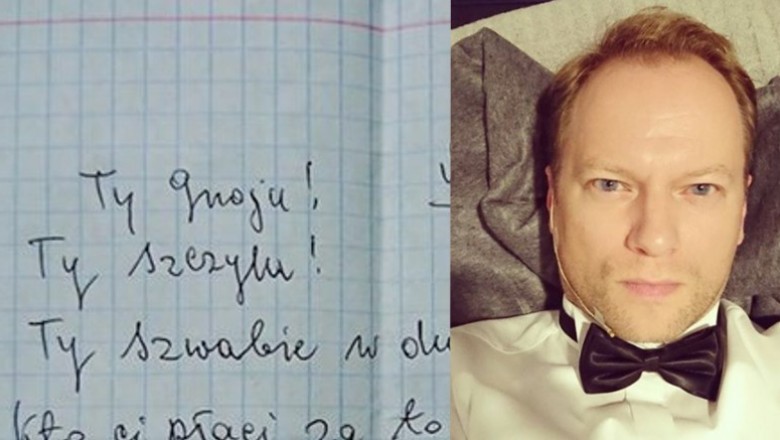 Ty gnoju!
Ty szczylu!
Ty szwabie w
Kto ci płaci za to